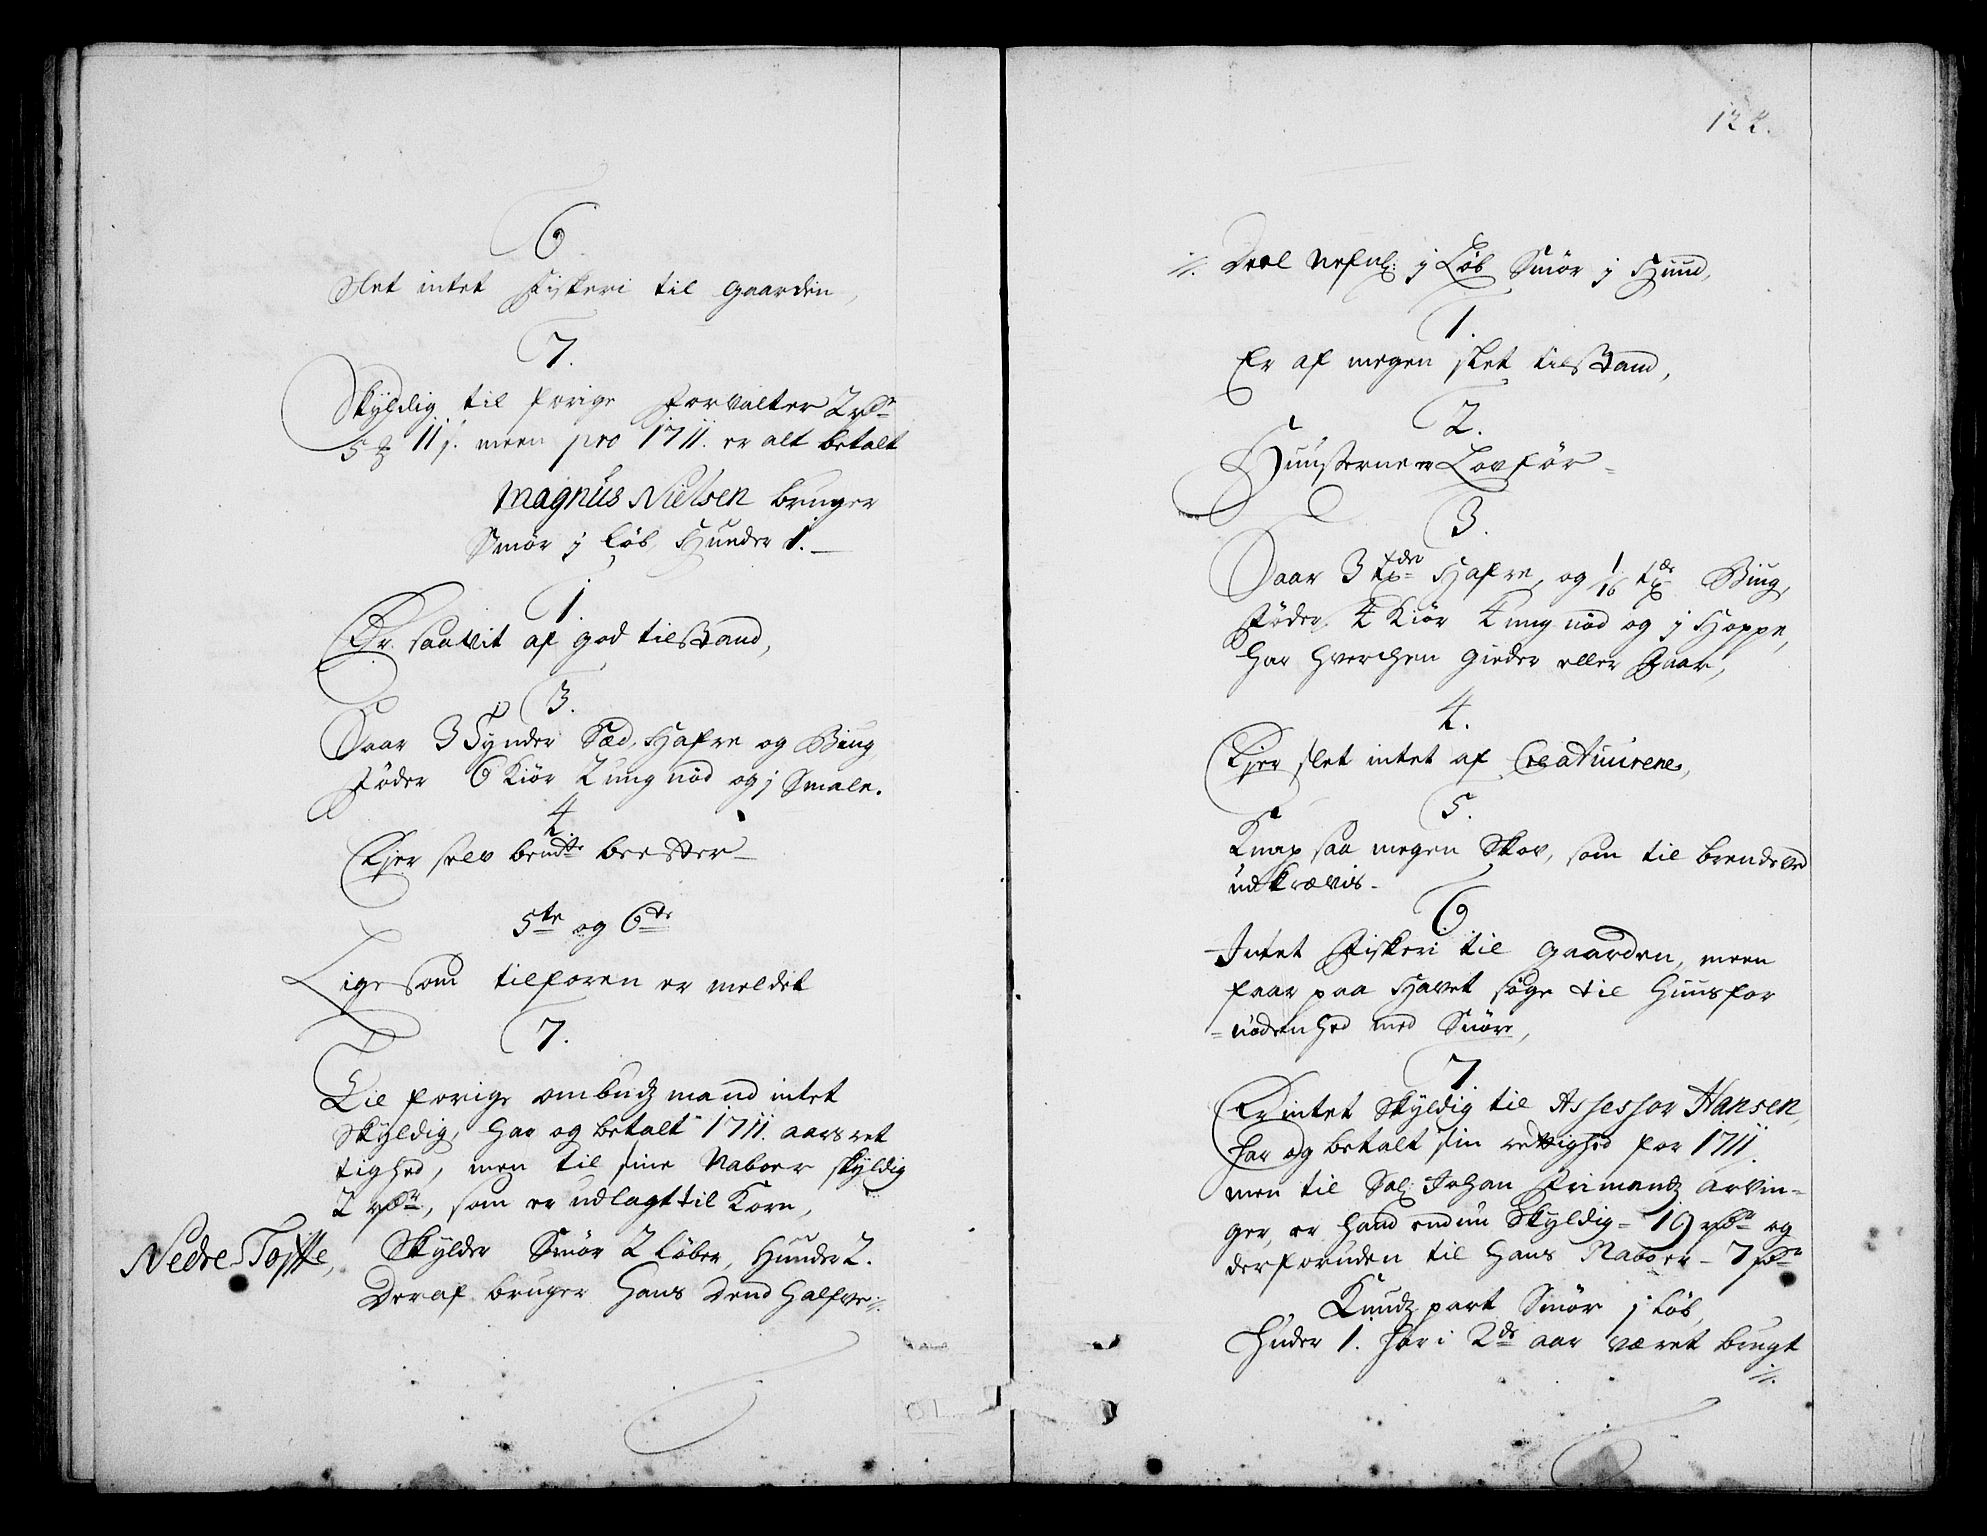 6.
Slet intet Fiskeri til gaarden,
7.
Skyldig til forige Forvalter 2 rdr
5 ₰ 11 s. meen pro 1711. er alt betalt
Magnus Nielsen bruger
Smör j Löb, Hunder 1.
1.
Er saavit af god tilstand,
3.
Saar 3 Tynder Sæd, Hafre og Biug
föder 6 Kiör 2 ung nöd og j Smale.
4.
Ejer selv bemte beester
5te og 6te
Lige som tilforen er meldet
7.
Til forige ombudzmand intet
skyldig, har og betalt 1711. aars ret
tighed, men til sine Naboer skyldig
2 rdr, som er udlagt til Korn,
Nedre Tofte, Skylder Smör 2 Löber, Hunder 2.
Deraf bruger Hans Dend halfve ://:
122.
://: Deel Nefnl: j Löb Smör j Hund,
1.
Er af megen slet tilstand,
2.
Huuserne er Lovför
3.
Saar 3 tdr Hafre, og 1/16 td Biug,
föder 4 Kiör 4 ung nöd og j Hoppe,
har hverchen gieder eller Faar,
4.
Ejer slet intet af Creatuurene,
5.
Knap saa megen Skov, som til brendeved
udkrævis.
6.
Intet Fiskeri til gaarden, meen
faar paa Havet söge til Huusfor
nödenhed med Snöre,
7.
Er intet skyldig til Assessor Hansen,
har og betalt sin rettighed for 1711.
men til Sal: Johan Frimandz arvin-
ger, er hand endnu skyldig 19 rdr og
derforuden til hans Naboer 7 rdr
Knudz part Smör j Löb,
Huder 1. har i 2de aar været brugt
://: